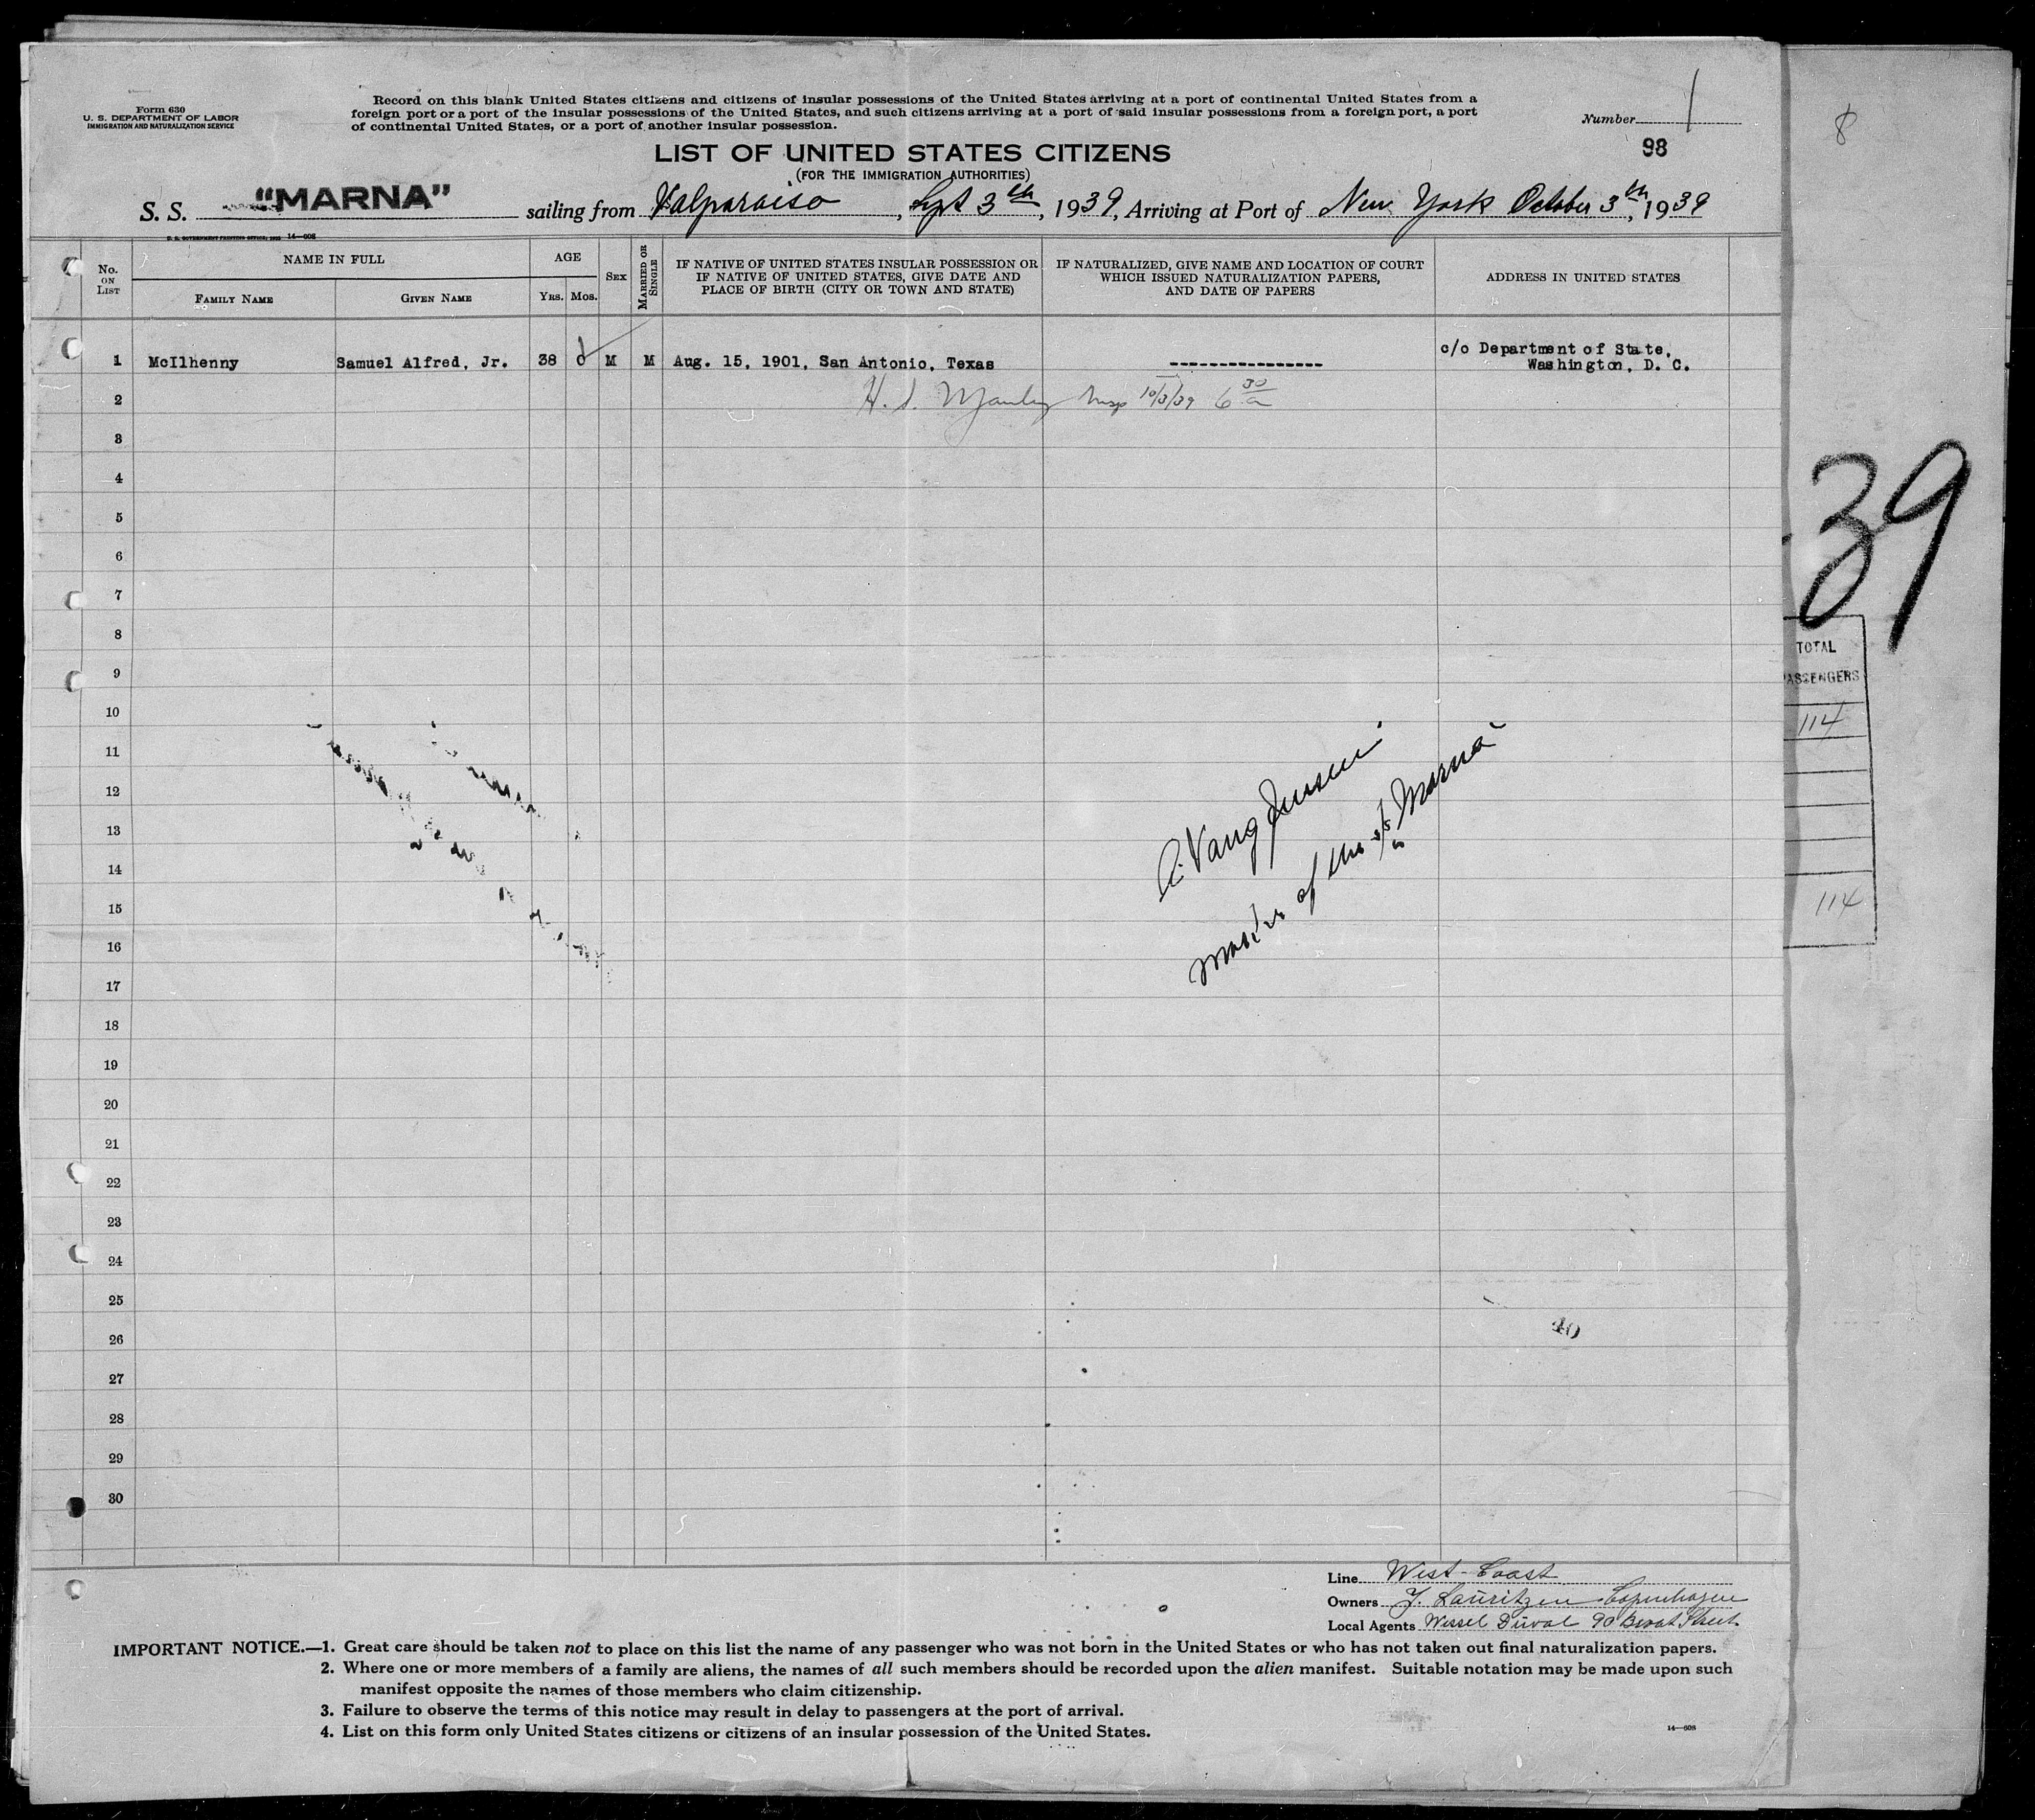 Form 630
U. S. DEPARTMENT OF LABOR
IMMIGRATION AND NATURALIZATION SERVICE
Record on this blank United States citizens and citizens of insular possessions of the United States arriving at a port of continental United States from a
foreign port or a port of the insular possessions of the United States, and such citizens arriving at a port of said insular possessions from a foreign port, a port
of continental United States, or a port of another insular possession.
Number 1
98
8
LIST OF UNITED STATES CITIZENS
(FOR THE IMMIGRATION AUTHORITIES)
S. S. "MARNA" sailing from Valparaiso, Sept 3th, 1939, Arriving at Port of New York October 3th, 1939
U. S. GOVERNMENT PRINTING OFFICE 14—608
No. ON LIST
NAME IN FULL
FAMILY NAME
GIVEN NAME
AGE
YRS. MOS.
SEX
MARRIED OR SINGLE
IF NATIVE OF UNITED STATES INSULAR POSSESSION OR
IF NATIVE OF UNITED STATES, GIVE DATE AND
PLACE OF BIRTH (CITY OR TOWN AND STATE)
IF NATURALIZED, GIVE NAME AND LOCATION OF COURT
WHICH ISSUED NATURALIZATION PAPERS,
AND DATE OF PAPERS
ADDRESS IN UNITED STATES
1 McIlhenny Samuel Alfred, Jr. 38 0 M M Aug. 15, 1901, San Antonio, Texas ---------------- c/o Department of State,
Washington, D. C.
2 H. S. Manley Insp 10/3/39 6 30 a
3
4
5
6
7
8
9
10
11
12
13
14
15
16
17
18
19
20
21
22
23
24
25
26
27
28
29
30
39
TOTAL
PASSENGERS
114
114
A. Vang Jensen
master of the s/s "Marna"
40
Line West-Coast
Owners J. Lauritzen Copenhagen
Local Agents Wessel Duval 90 Broad Street.
IMPORTANT NOTICE.—1. Great care should be taken not to place on this list the name of any passenger who was not born in the United States or who has not taken out final naturalization papers.
2. Where one or more members of a family are aliens, the names of all such members should be recorded upon the alien manifest. Suitable notation may be made upon such
manifest opposite the names of those members who claim citizenship.
3. Failure to observe the terms of this notice may result in delay to passengers at the port of arrival.
4. List on this form only United States citizens or citizens of an insular possession of the United States.
14—608